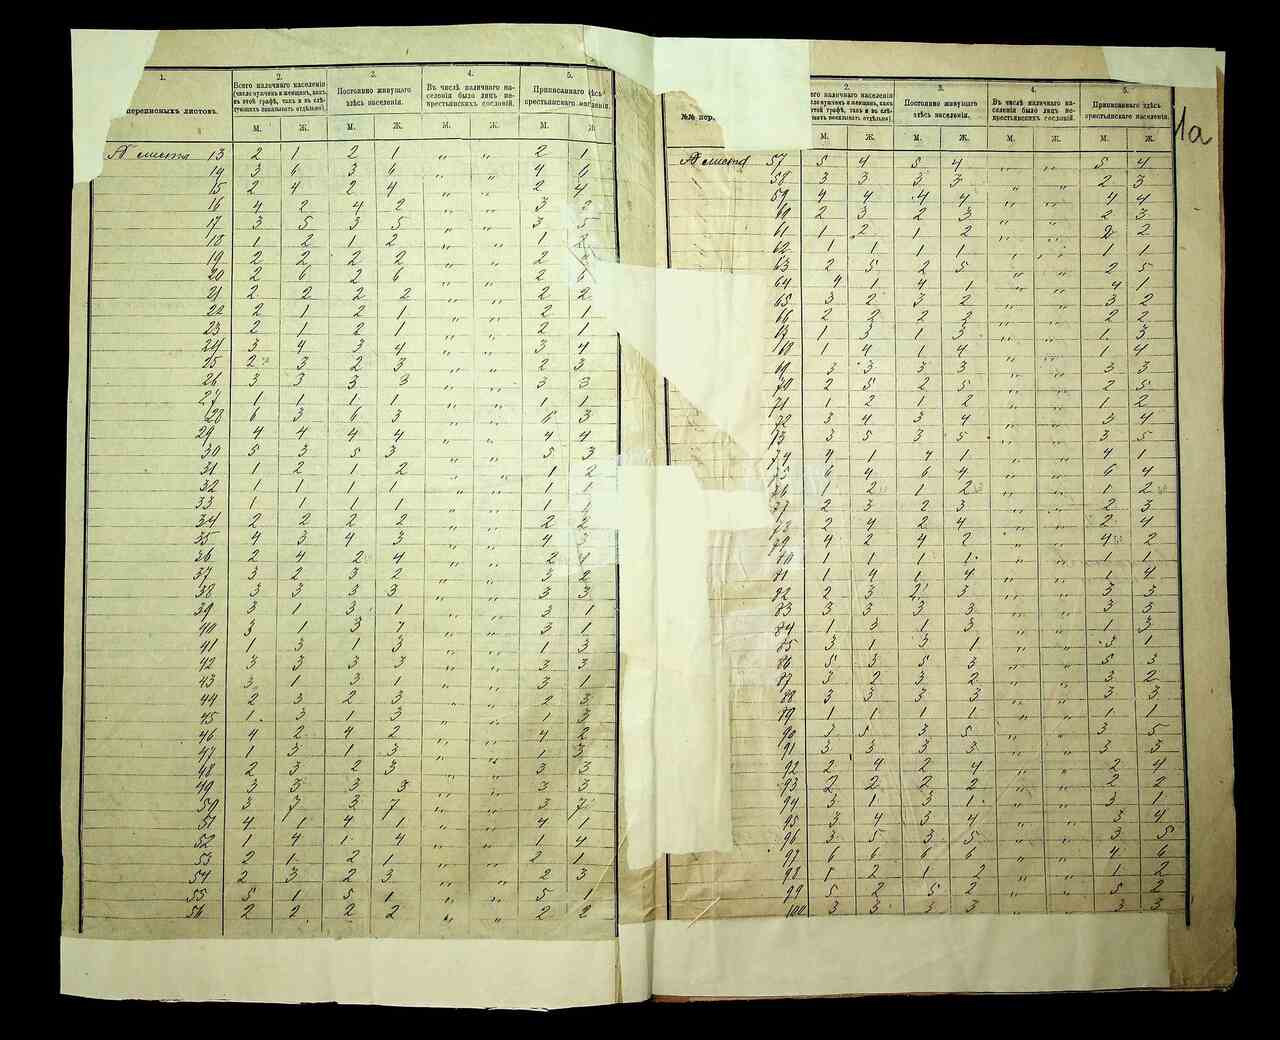 1.
переписныхъ листовъ.
2.
Всего наличнаго населенія
(число мужчинъ и женщинъ, какъ
въ этой графѣ, такъ и въ слѣ-
дующихъ показывать отдѣльно).
3.
Постоянно живущаго
здѣсь населенія.
4.
Въ числѣ наличнаго на-
селенія было лицъ не-
крестьянскихъ сословій.
5.
Приписаннаго здѣсь
крестьянскаго населенія.
М. Ж. М. Ж. М. Ж. М. Ж.
№ листа 13 2 1 2 1 „ „ 2 1
14 3 6 3 6 „ „ 4 6
15 2 4 2 4 „ „ 2 4
16 4 2 4 2 „ „ 3 2
17 3 5 3 5 „ „ 3 5
18 1 2 1 2 „ „ 1 2
19 2 2 2 2 „ „ 2
20 2 6 2 6 „ „ 2 6
21 2 2 2 2 „ „ 2 2
22 2 1 2 1 „ „ 2 1
23 2 1 2 1 „ „ 2 1
24 3 4 3 4 „ „ 3 4
25 2 3 2 3 „ „ 2 3
26 3 3 3 3 „ „ 3 3
27 1 1 1 1 „ „ 1 1
28 6 3 6 3 „ „ 6 3
29 4 4 4 4 „ „ 4 4
30 5 3 5 3 „ „ 5 3
31 1 2 1 2 „ „ 1 2
32 1 1 1 1 „ „ 1 1
33 1 1 1 1 „ „ 1 1
34 2 2 2 2 „ „ 2 2
35 4 3 4 3 „ „ 4
36 2 4 2 4 „ „ 2 4
37 3 2 3 2 „ „ 3 2
38 3 3 3 3 „ „ 3 3
39 3 1 3 1 „ „ 3 1
40 3 1 3 1 „ „ 3 1
41 1 3 1 3 „ „ 1 3
42 3 3 3 3 „ „ 3 3
43 3 1 3 1 „ „ 3 1
44 2 3 2 3 „ „ 2 3
45 1 3 1 3 „ „ 1 3
46 4 2 4 2 „ „ 4 2
47 1 3 1 3 „ „ 1 3
48 2 3 2 3 „ „ 3 3
49 3 3 3 3 „ „ 3 3
50 3 7 3 7 „ „ 3 7
51 4 1 4 1 „ „ 4 1
52 1 4 1 4 „ „ 1 4
53 2 1 2 1 „ „ 2 1
54 2 3 2 3 „ „ 2 3
55 5 1 5 1 „ „ 5 1
56 2 2 2 2 „ „ 2 2
1а
№№ пер.
2.
наличнаго населенія
мужчинъ и женщинъ, какъ
графѣ, такъ и въ слѣ-
показывать отдѣльно).
3.
Постоянно живущаго
здѣсь населенія.
4.
Въ числѣ наличнаго на-
селенія было лицъ не-
крестьянскихъ сословій.
5.
Приписаннаго здѣсь
крестьянскаго населенія.
М. Ж. М. Ж. М. Ж. М. Ж.
№ листа 57 5 4 5 4 „ „ 5 4
58 3 3 3 3 „ „ 2 3
59 4 4 4 4 „ „ 4 4
60 2 3 2 3 „ „ 2 3
61 1 2 1 2 „ „ 2 2
62 1 1 1 1 „ „ 1 1
63 2 5 2 5 „ „ 2 5
64 4 1 4 1 „ „ 4 1
65 3 2 3 2 „ „ 3 2
66 2 2 2 2 „ „ 2 2
67 1 3 1 3 „ „ 1 3
68 1 4 1 4 „ „ 1 4
69 3 3 3 3 „ „ 3 3
70 2 5 2 5 „ „ 2 5
71 1 2 1 2 „ „ 1 2
72 3 4 3 4 „ „ 3 4
73 3 5 3 5 „ „ 3 5
74 4 1 4 1 „ „ 4 1
75 6 4 6 4 „ „ 6 4
76 1 2 1 2 „ „ 1 2
77 2 3 2 3 „ „ 2 3
78 2 4 2 4 „ „ 2 4
79 4 2 4 2 „ „ 4 2
80 1 1 1 1 „ „ 1 1
81 1 4 1 4 „ „ 1 4
82 2 3 2 3 „ „ 3 3
83 3 3 3 3 „ „ 3 3
84 1 3 1 3 „ „ 1 3
85 3 1 3 1 „ „ 3 1
86 5 3 5 3 „ „ 5 3
87 3 2 3 2 „ „ 3 2
88 3 3 3 3 „ „ 3 3
89 1 1 1 1 „ „ 1 1
90 3 5 3 5 „ „ 3 5
91 3 3 3 3 „ „ 3 3
92 2 4 2 4 „ „ 2 4
93 2 2 2 2 „ „ 2 2
94 3 1 3 1 „ „ 3 1
95 3 4 3 4 „ „ 3 4
96 3 5 3 5 „ „ 3 5
97 6 6 6 6 „ „ 4 6
98 1 2 1 2 „ „ 1 2
99 5 2 5 2 „ „ 5 2
100 3 3 3 3 „ „ 3 3